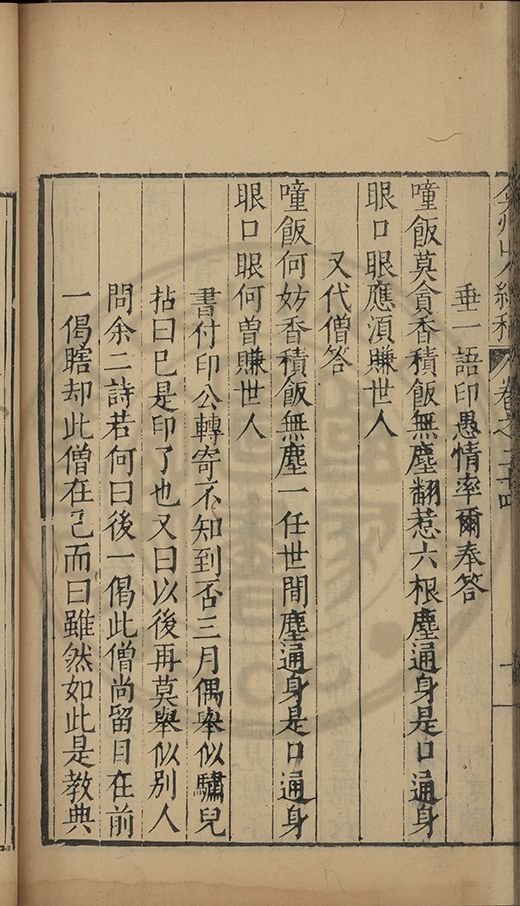 卷之二十四
垂一語印愚情率爾奉答
噇飯莫貪香積飯無塵翻惹六根塵通身是口通身
眼口眼應須賺世人
又代僧答
噇飯何妨香積飯無塵一任世間塵通身是口通身
眼口眼何曾賺世人
書付印公轉寄不知到否三月偶舉似驌兒
拈曰已是印了也又曰以後再莫舉似別人
問余二詩若何曰後一偈此僧尚留目在前
一偈瞎却此僧在已而曰雖然如此是教典